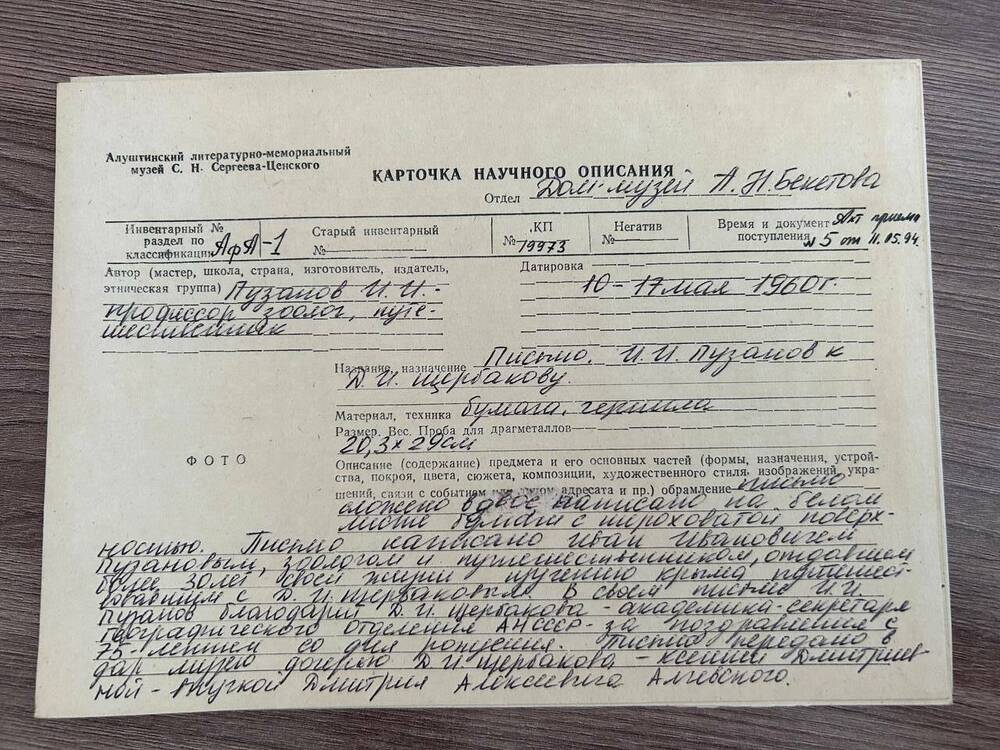 Алуштинский литературно-мемориальный
музей С. Н. Сергеева-Ценского
КАРТОЧКА НАУЧНОГО ОПИСАНИЯ
Отдел Дом-музей А. Н. Бекетова
Инвентарный №
раздел по
классификации АфА-1
Старый инвентарный
№
КП
№ 19973
Негатив
№
Время и документ Акт приема
поступления №5 от 11.05.94.
Автор (мастер, школа, страна, изготовитель, издатель,
этническая группа) Пузанов И. И. -
профессор зоолог, путе-
шественник
Датировка
10-17 мая 1960 г.
Название, назначение Письмо. И. И. Пузанов к
Д. И. Щербакову.
Материал, техника бумага, чернила
Размер. Вес. Проба для драгметаллов
20,3 х 29 см
ФОТО
Описание (содержание) предмета и его основных частей (формы, назначения, устрой-
ства, покроя, цвета, сюжета, композиции, художественного стиля, изображений, укра-
шений, связи с событием адресата и пр.) обрамление письмо
сложено вдвое написано на белом
листе бумаги с шероховатой поверх-
ностью. Письмо написано Иван Ивановичем
Пузановым, зоологом и путешественником, отдавшем
более 30 лет своей жизни изучению Крыма, путешест-
вовавшим с Д. И. Щербаковым. В своем письме И. И.
Пузанов благодарит Д. И. Щербакова - академика-секретаря
географического отделения АНСССР - за поздравления с
75-летием со дня рождения. Письмо передано в
дар музею дочерью Д. И. Щербакова - Ксенией Дмитриев-
ной - внучкой Дмитрия Алексеевича Алчевского.